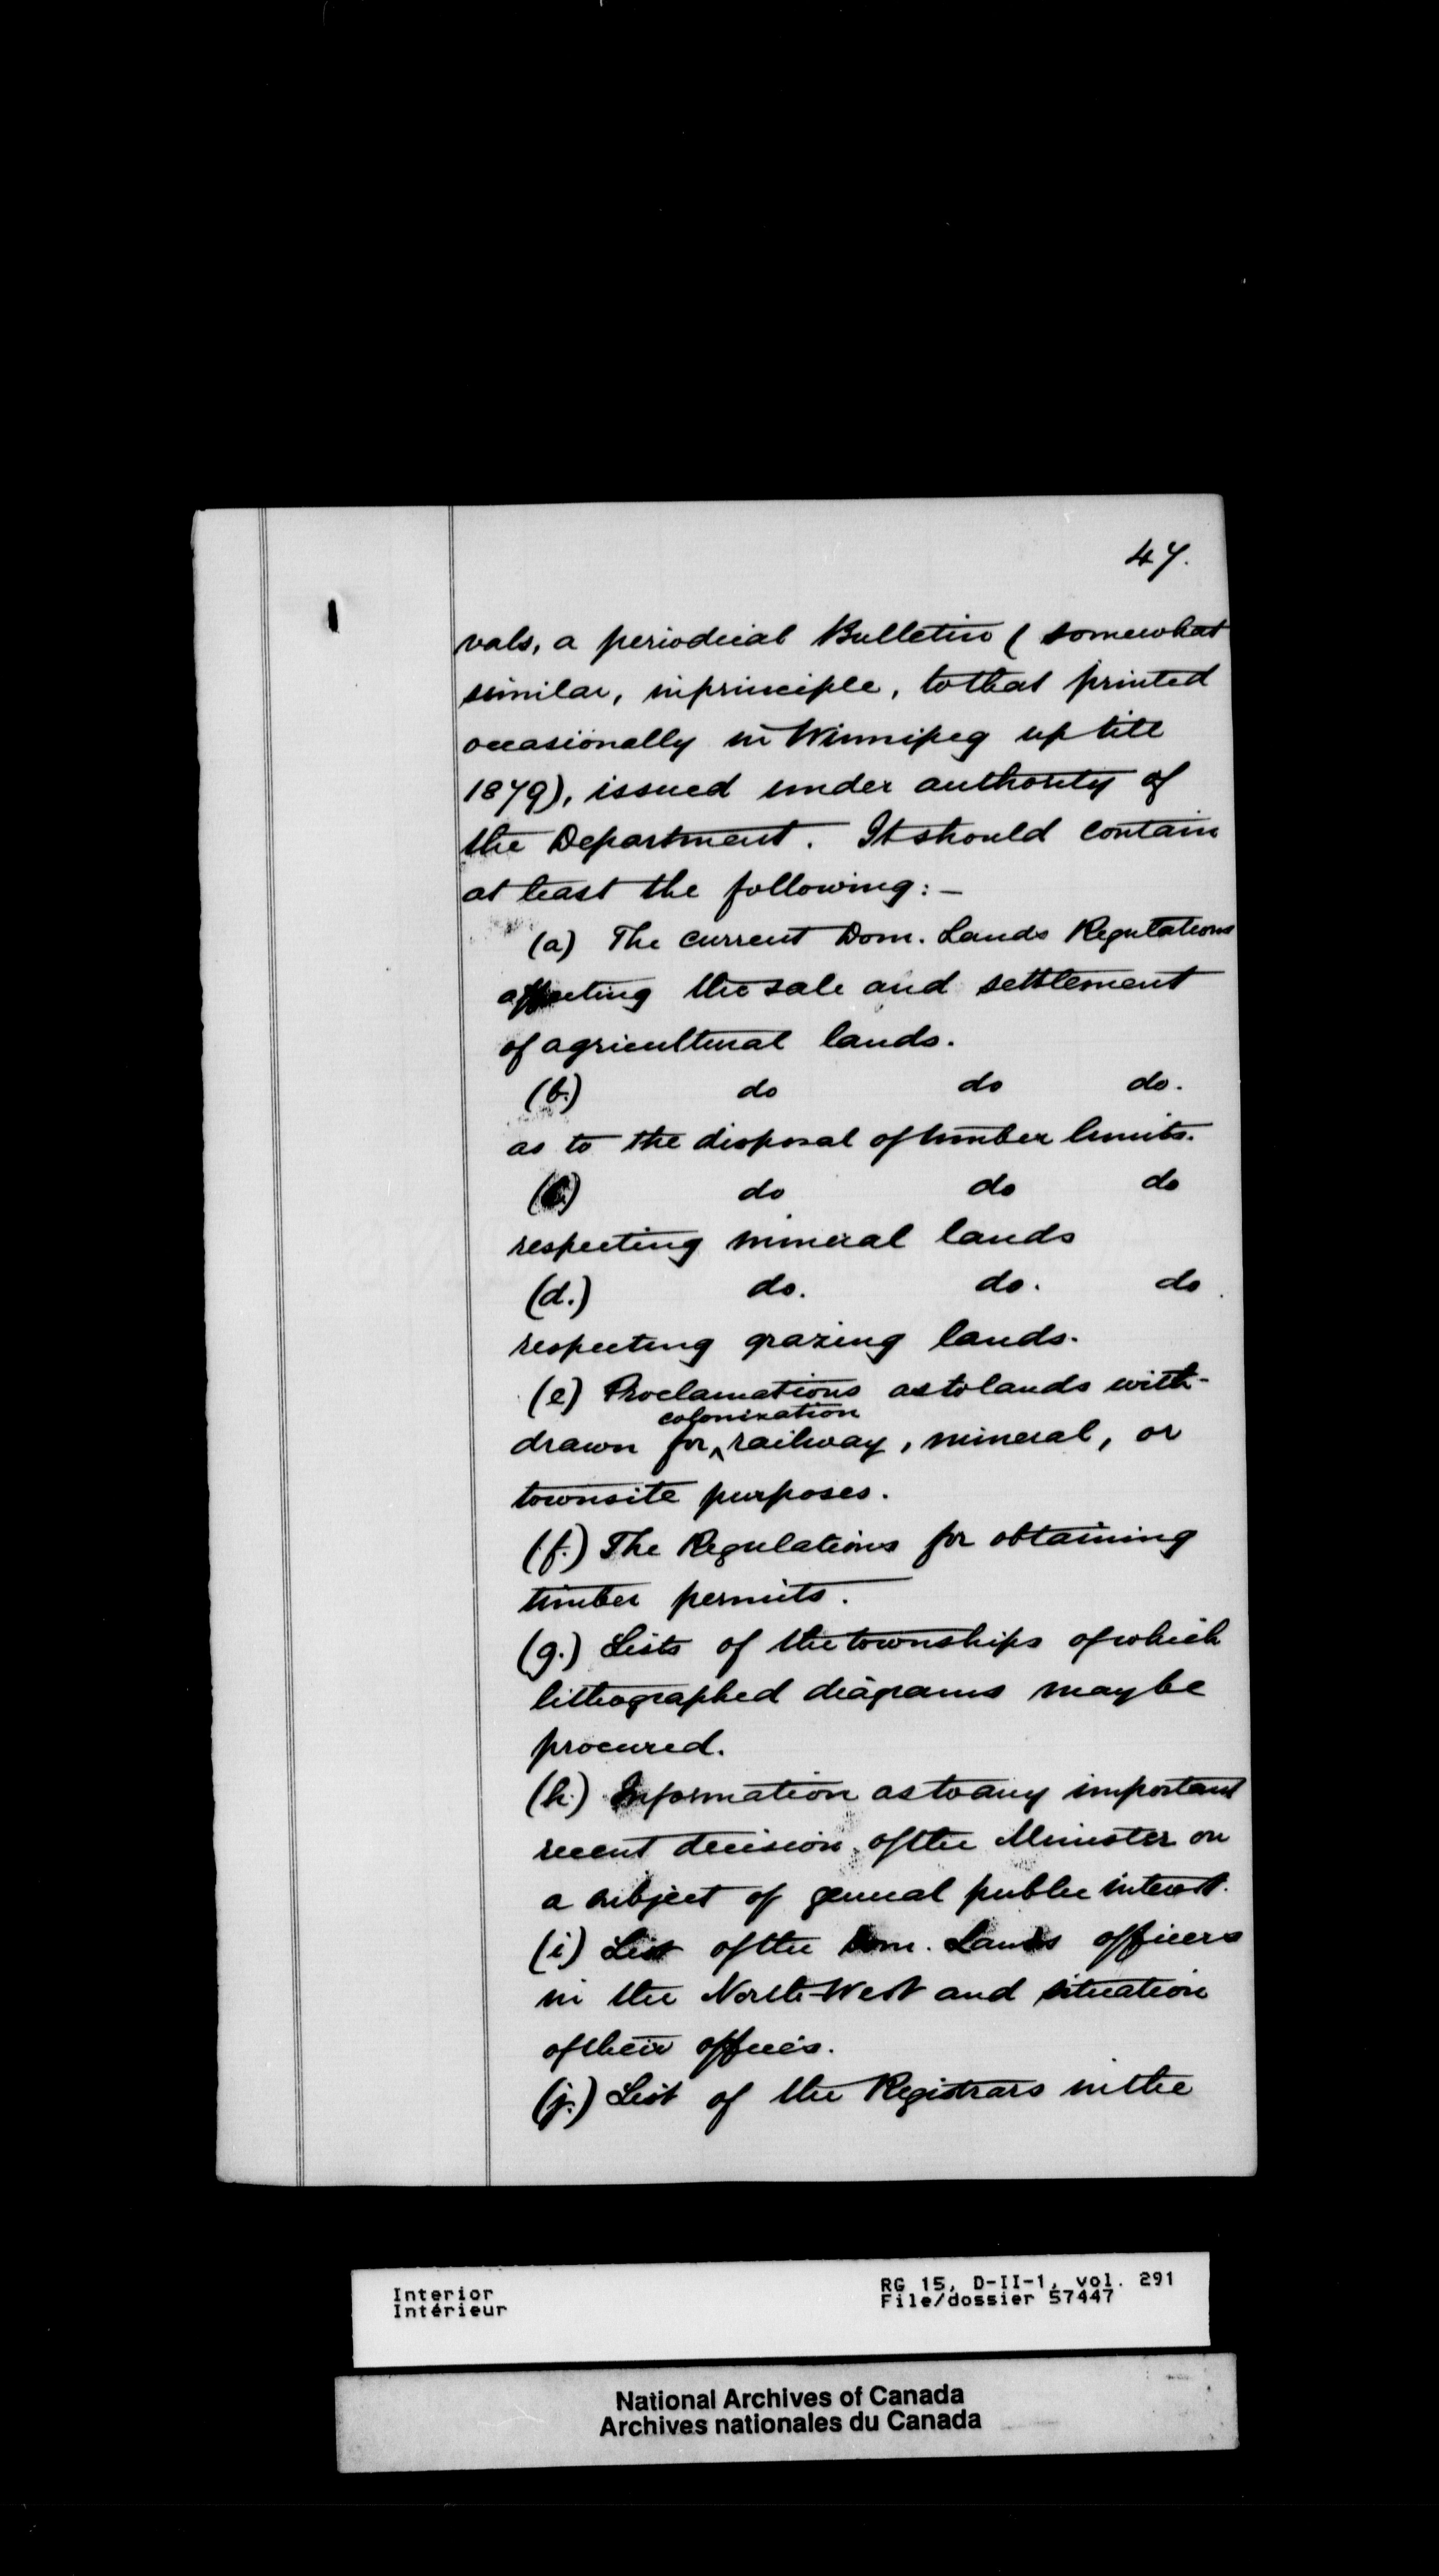 47.
vals, a periodical Bulletin ( somewhat
similar, in principle, to that printed
occasionally in Winnipeg up till
1879), issued under authority of
the Department. It should contain
at least the following:—
(a) The current Dom. Lands Regulations
affecting the sale and settlement
of agricultural lands.
(b.) do do do.
as to the disposal of timber limits.
(c) do do do
respecting mineral lands
(d.) do. do. do.
respecting grazing lands.
(e) Proclamations as to lands with-
colonization
drawn for ^ railway, mineral, or
townsite purposes.
(f.) The Regulations for obtaining
timber permits.
(g.) Lists of the townships of which
lithographed diagrams may be
procured.
(h.) Information as to any important
recent decision of the Minister on
a subject of general public interest.
(i) List of the Dom. Lands officers
in the North-West and situation
of their offices.
(j.) List of the Registrars in the
Interior
Intérieur
RG 15, D-II-1, vol. 291
File/dossier 57447
National Archives of Canada
Archives nationales du Canada